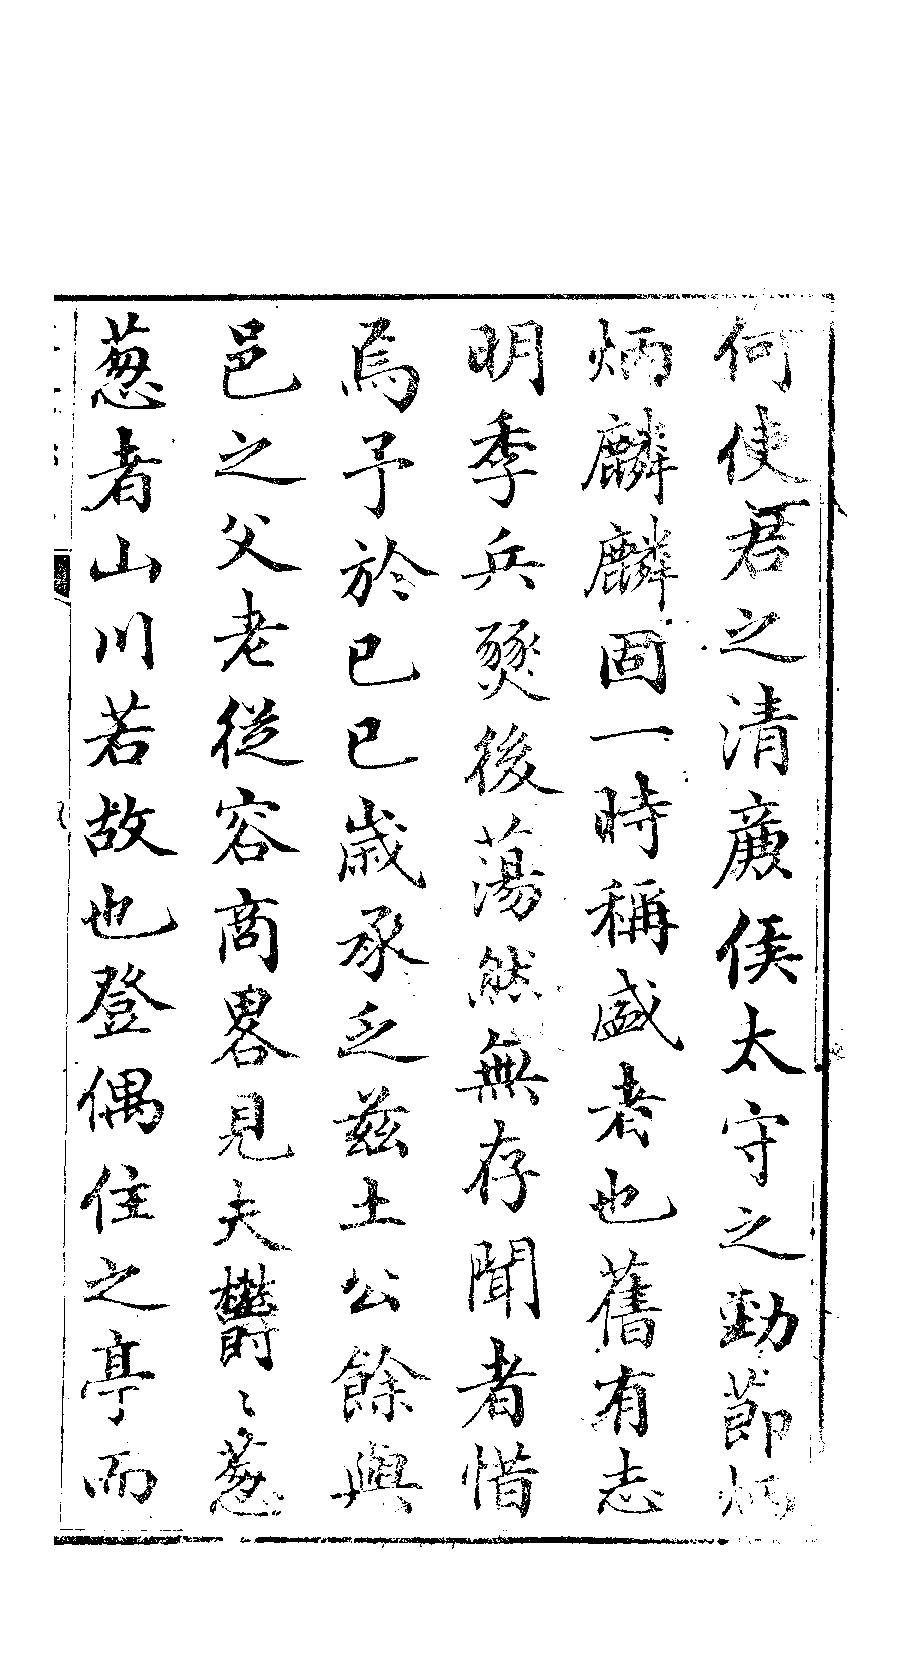 何使君之清廉侯太守之勁節炳
炳麟麟固一時稱盛者也舊有志
明季兵燹後蕩然無存聞者惜
焉予於己巳歲承乏兹土公餘與
邑之父老從容商畧見夫欝〻葱
葱者山川若故也登偶住之亭而